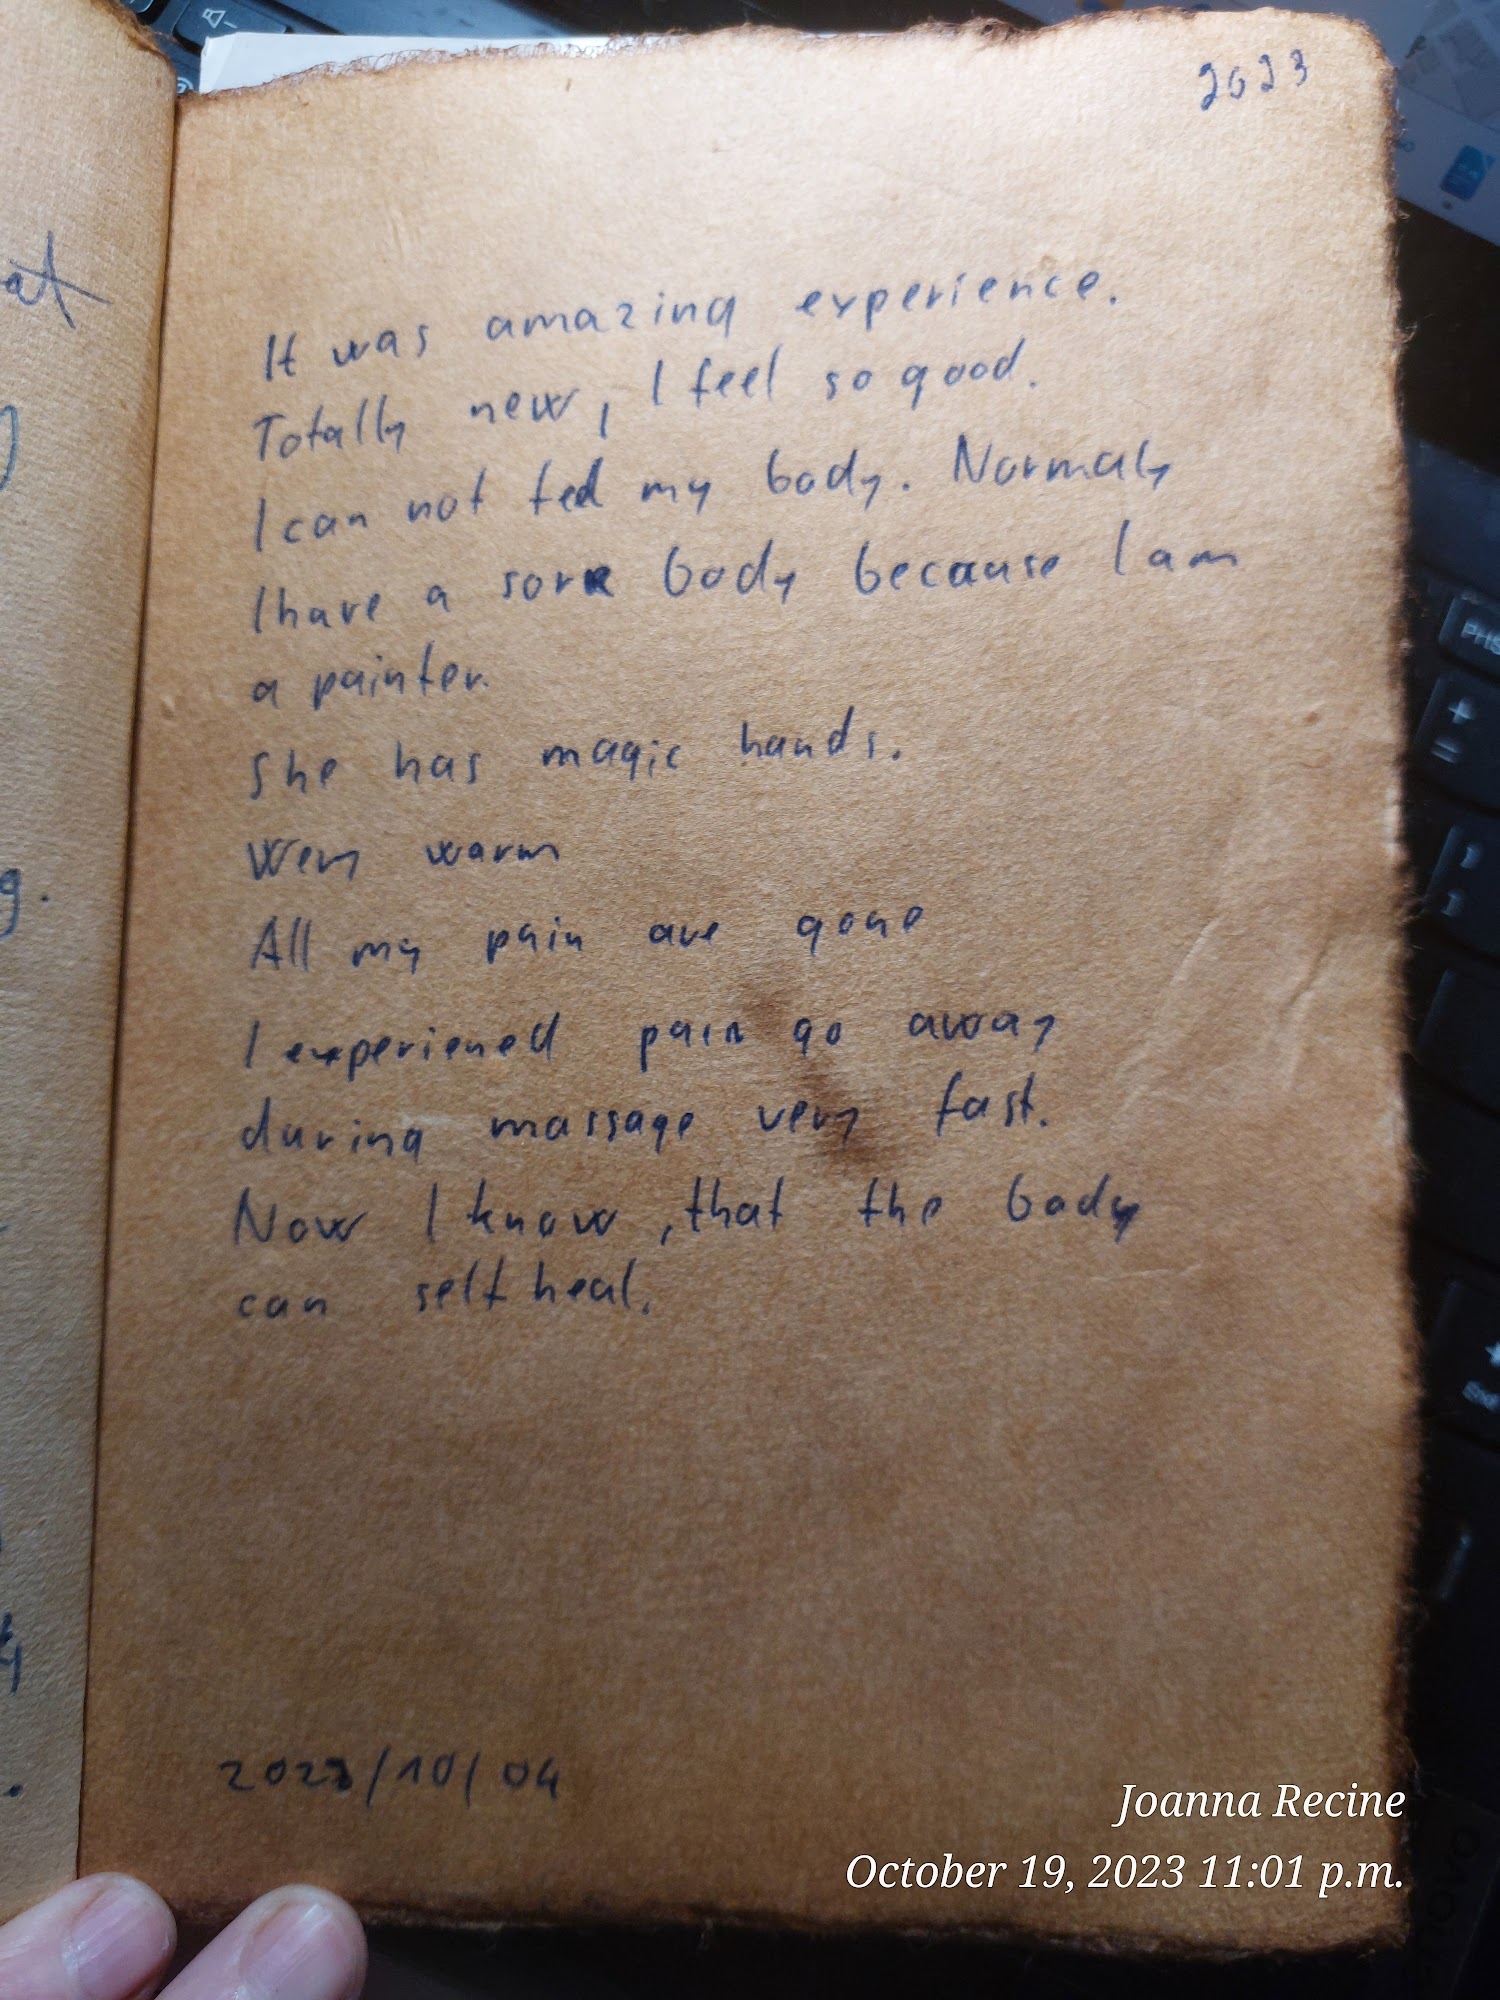 2023
It was amazing experience.
Totally new, I feel so good.
I can not feel my body. Normaly
I have a sore body because I am
a painter.
She has magic hands.
Wery warm
All my pain are gone
I experiened pain go away
during massage very fast.
Now I know, that the body
can self heal.
2023/10/04
Joanna Recine
October 19, 2023 11:01 p.m.